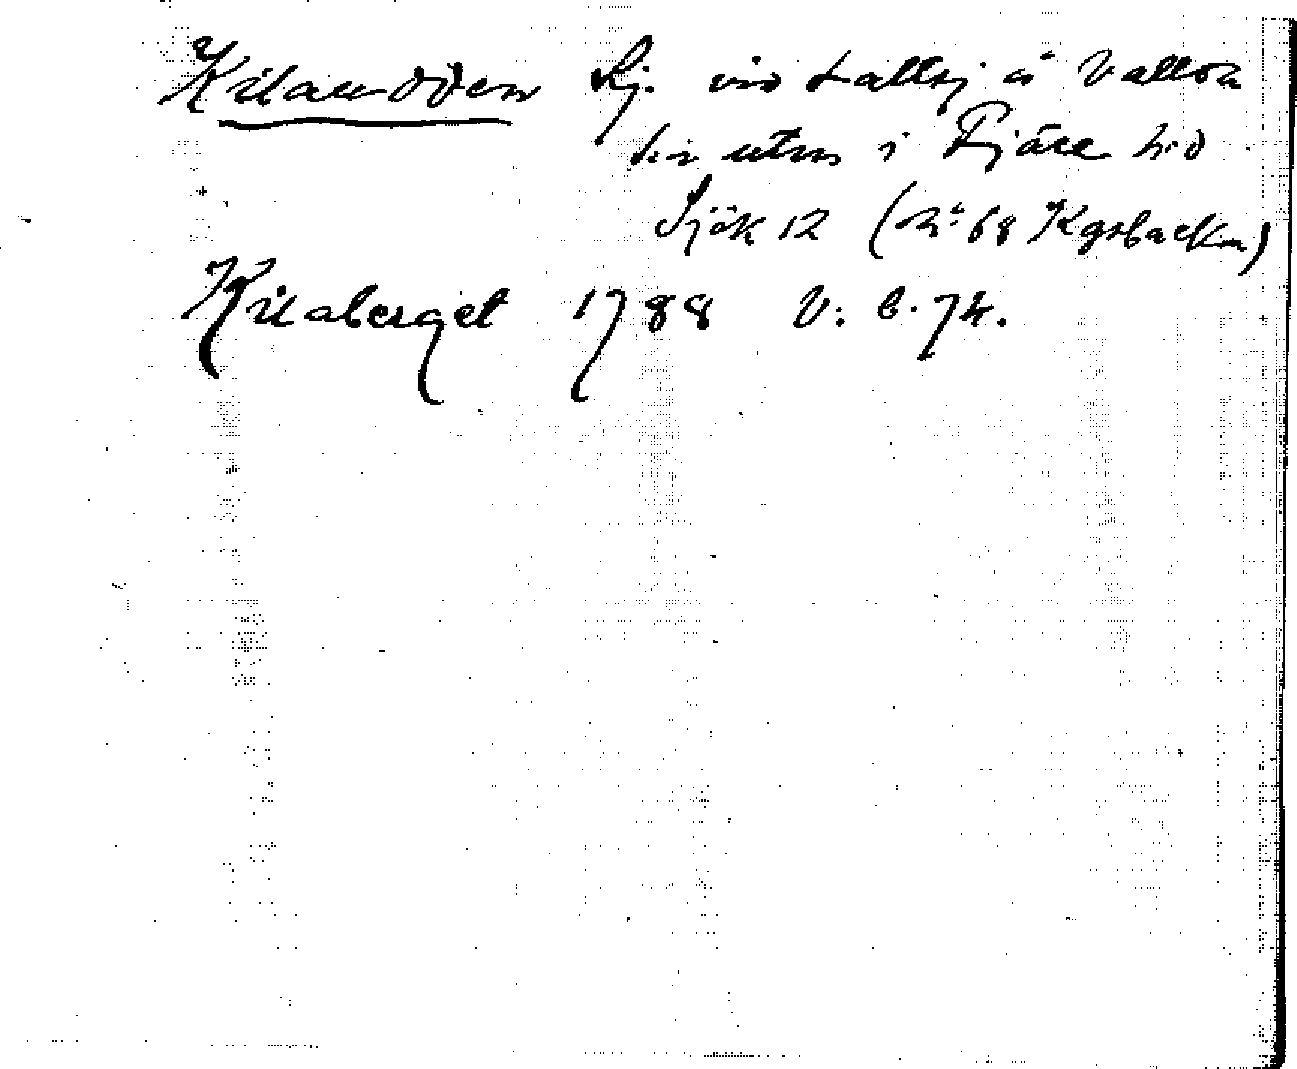 Kilaudden Sj. vid Lallsj å Vallda
utm i Fjäre hd
Sjök 12 (N:o 68 Kgsbacka)
Kilaberget 1788 V. b. 74.